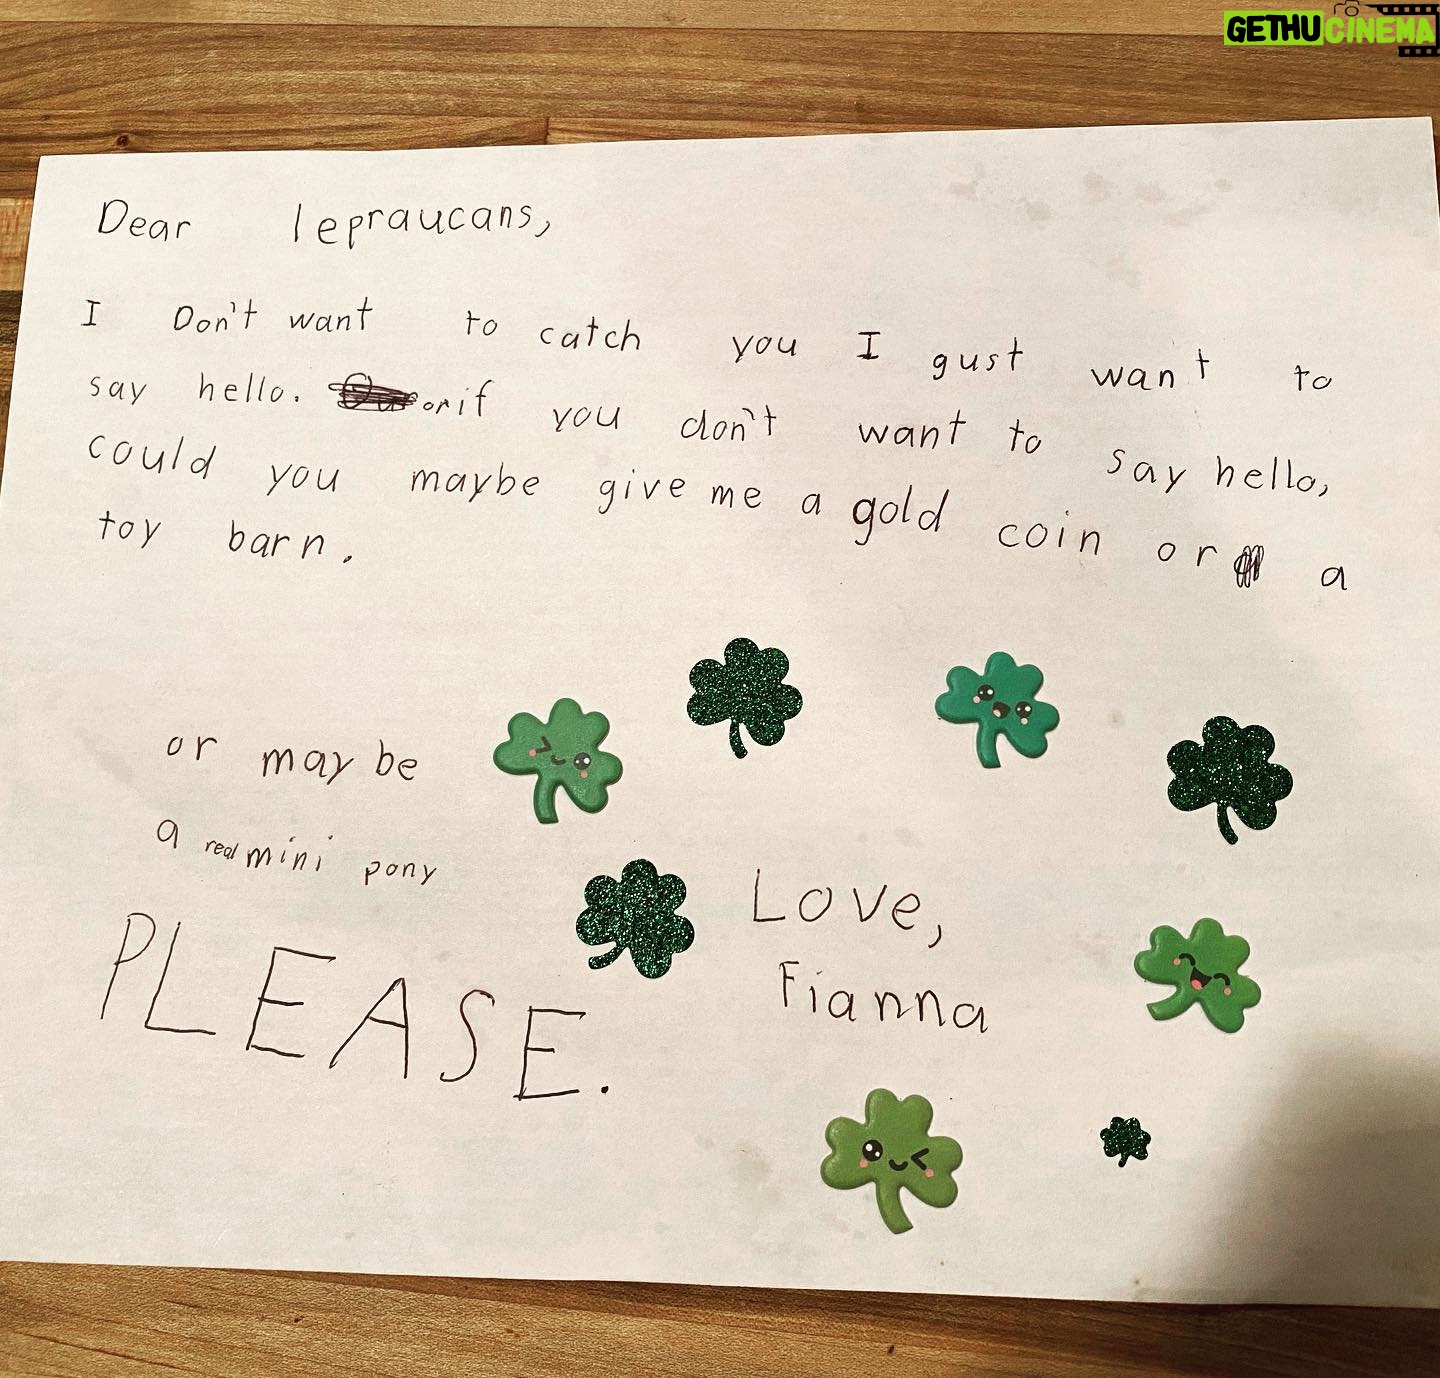 GETHUCINEMA
Dear lepraucans,
I Don't want to catch you I gust want to
say hello. or if you don't want to say hello,
could you maybe give me a gold coin or a
toy barn.
or maybe
a real mini pony
PLEASE.
Love,
Fianna